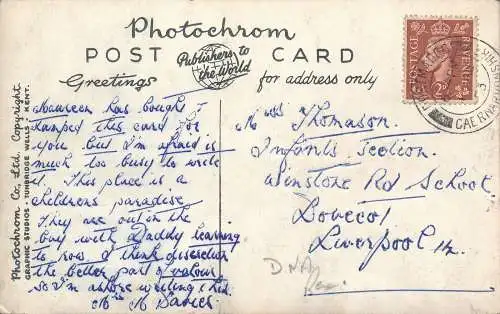 Photochrom
POST CARD
Publishers to the World
Greetings
for address only
Photochrom Co., Ltd. Copyright
GRAPHIC STUDIOS · TUNBRIDGE WELLS · KENT.
POSTAGE
REVENUE
2D
CAERN
Maureen has bought &
stamped this card for
you but I'm afraid is
much too busy to write
it. This place is a
childrens paradise
They are out in the
bay with Daddy learning
to row. I think discretion
the better part of valour
so I'm ashore writing this.
Mrs M Davies
Miss Thomason.
Infants section.
Winstone Rd School
Dovecot
Liverpool 14.